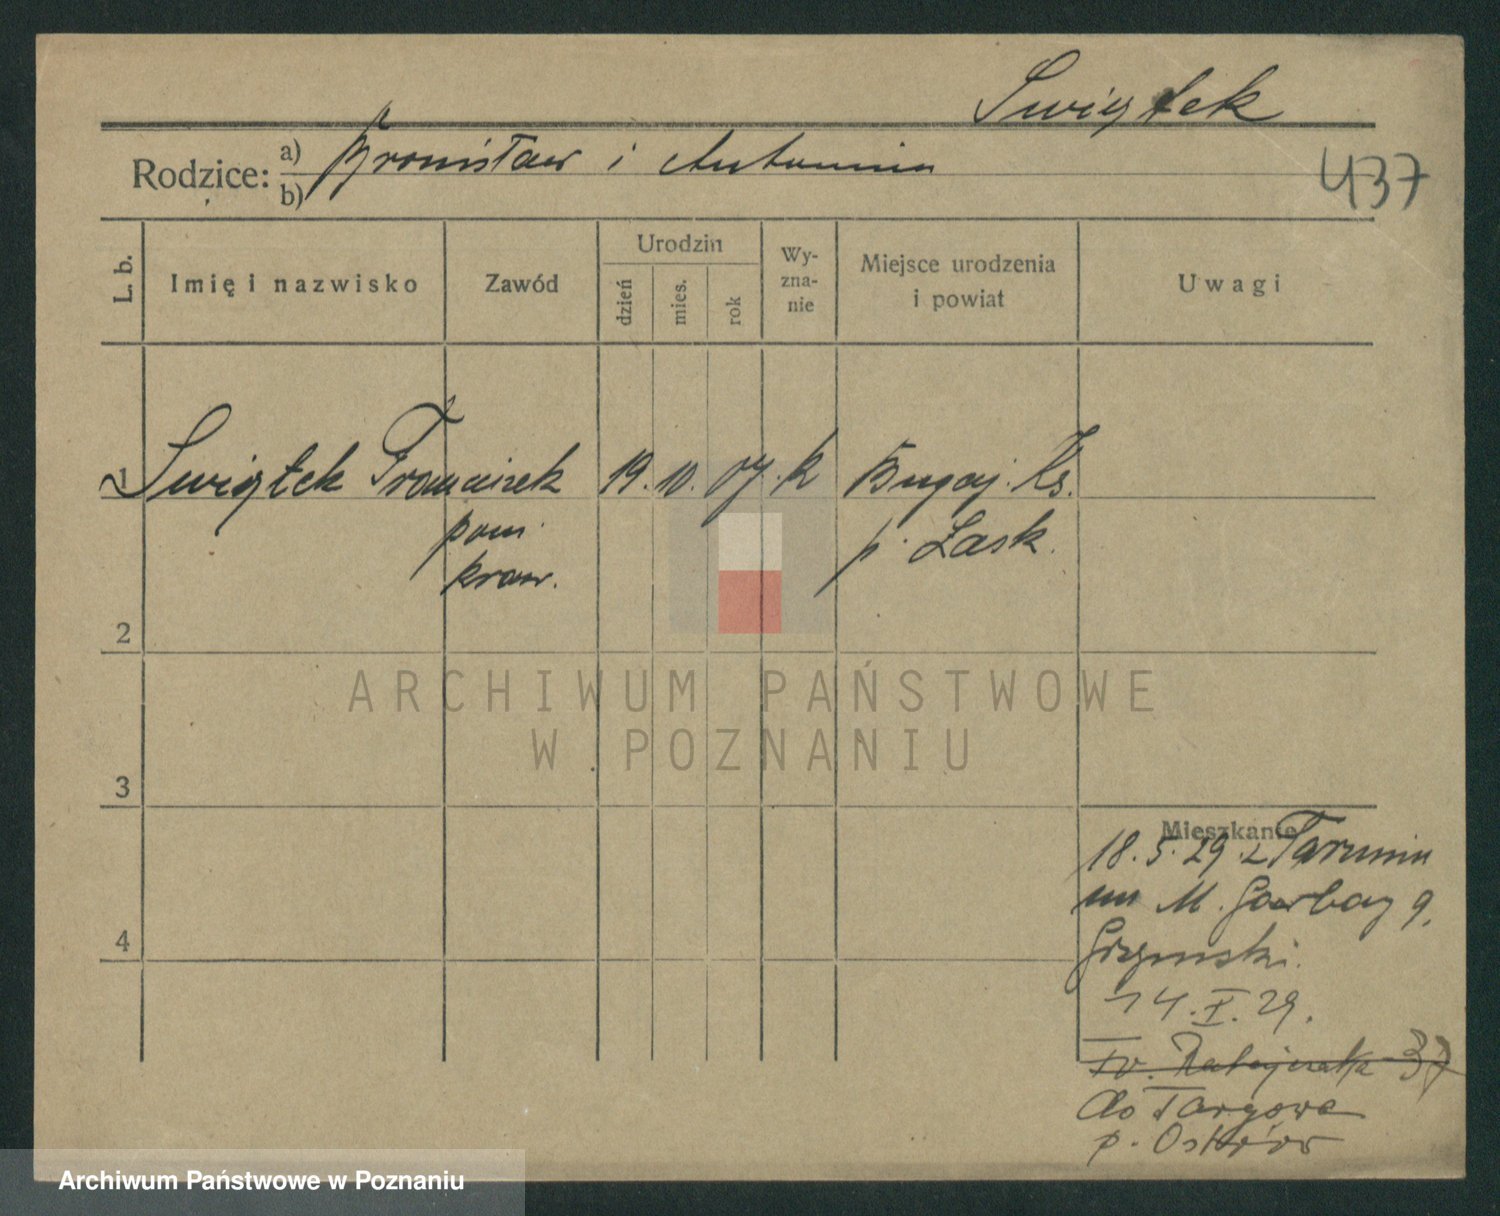 Świątek
Rodzice: a) Bronisław i Antonina
b)
437
L. b.
Imię i nazwisko
Zawód
Urodzin
dzień
mies.
rok
Wy-
zna-
nie
Miejsce urodzenia
i powiat
Uwagi
1 Świątek Franciszek 19. 10. 07. k Bugaj.
pom
kraw.
p. Łask.
2
3
4
Mieszkanie
18. 5. 29. z
M. Garbary 9.
14. X. 29.
Ratajczaka 37
do Targowa
p. Ostrów
ARCHIWUM PAŃSTWOWE
W POZNANIU
Archiwum Państwowe w Poznaniu